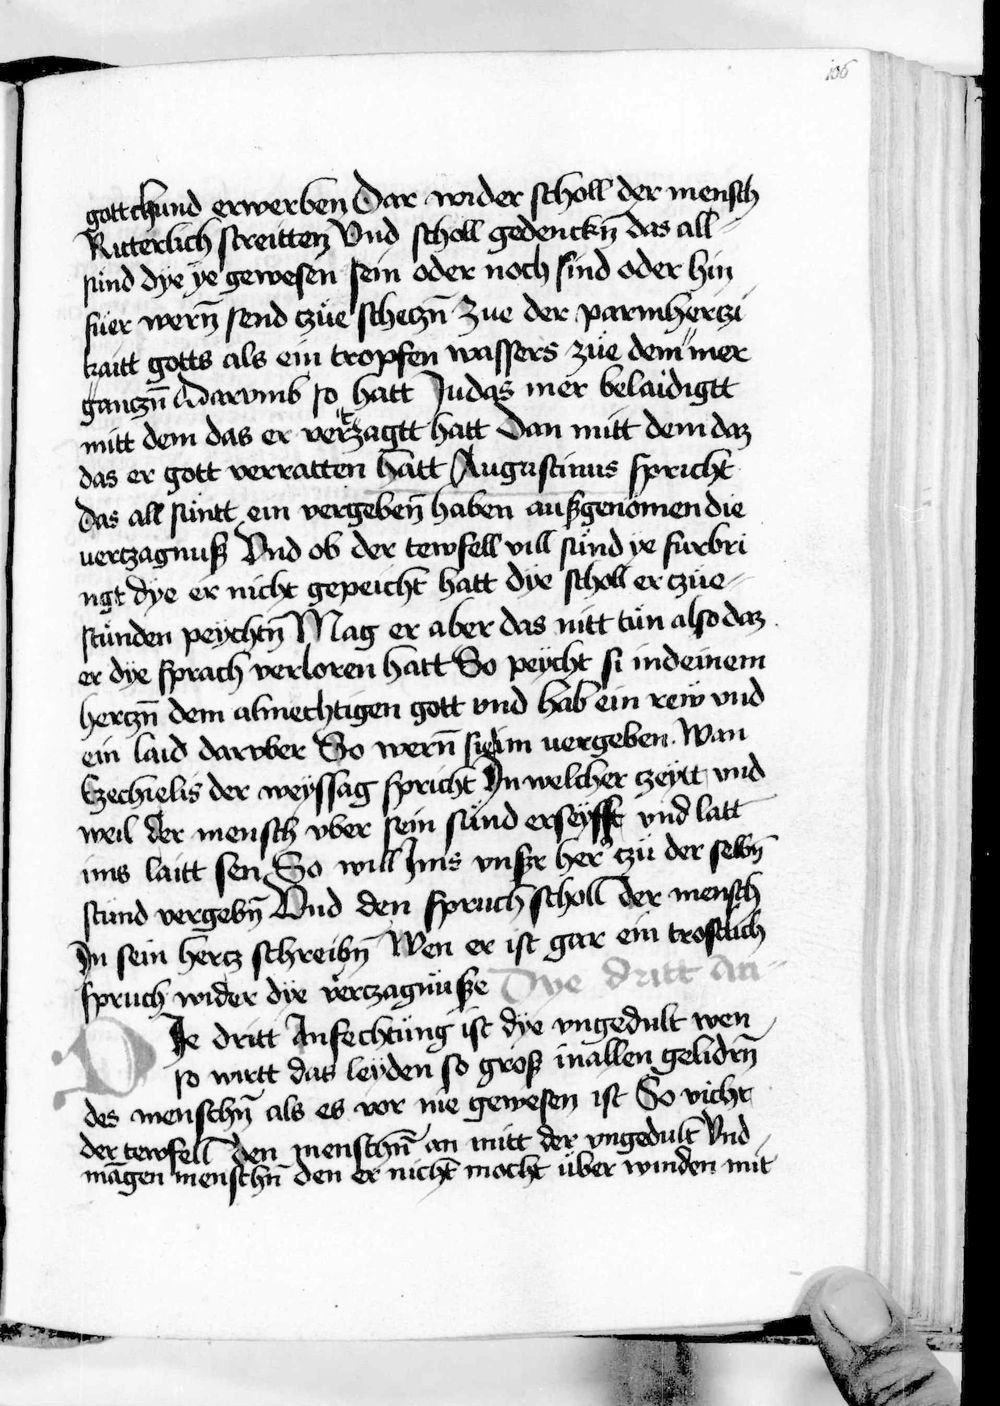 106
gottchund erwerben Dar wider scholl der mensch
Ritterlich streitten Vnd scholl gedenckn̄ das all-
sünd dye ye gewesen sein oder noch sind oder hin
fuer wern̄ send czüe schetzn̄ Zue der parmhertzi
kaitt gotts als ein tropfen wassers züe dem mer
gantzn̄ Darvmb so hatt Judas mer belaidigtt
mitt dem das er verzagtt hatt Dan mitt dem daz
das er gott verratten hatt Augustinus spricht
das all süntt ein vergeben̄ haben außgenomen die
uertzagnuß Vnd ob der tewfell vill sünd ye furbri
ngt dye er nicht gepeicht hatt dye scholl er czüe-
stünden peychtn̄ Mag er aber das nitt tün also daz
er dye sprach verloren hatt So peycht si in deinem
hertzn̄ dem almechtigen gott vnd hab ein rew vnd
ein laid darvber So wern̄ sie im uergeben. Wan
Ezechielis der weyssag spricht In welcher czeytt vnd
weil der mensch vber sein sünd erseyfft vnd latt
ims laitt sen So will Jms vnser her czü der selbn̄
stund vergebn̄ Vnd den spruch scholl der mensch
In sein hertz schreibn̄ Wen er ist gar ein trostlich
spruch wider dye vertzagnuße Dye dritt An-
DIe dritt Anfechtüng ist dye vngedult wen
so wirtt das leyden so groß in allen gelidrn̄
des menschn̄ als es vor nie gewesen ist So vicht
der tewfell den menschn̄ an mitt der vngedult Vnd
māgen menschn̄ den er nicht mocht über winden mit